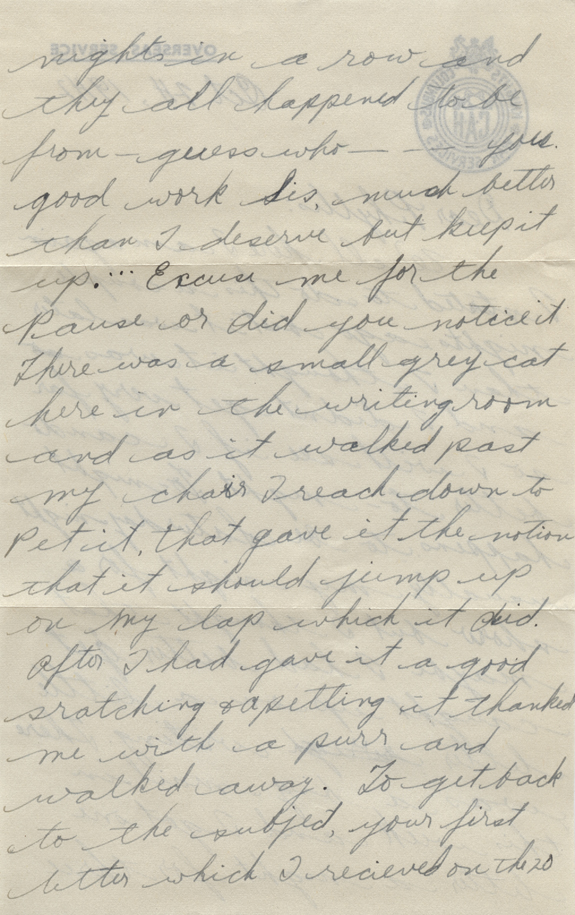 nights in a row and
thy all happened to be
from - guess who - - - you.
good work Sis, much better
than I deserve but keep it
up. ... Excuse me for the
Pause or did you notice it
There was a small grey cat
here in the writing room
and as it walked past
my chair I reach down to
Pet it, that gave it the notion
that it should jump up
on my lap which it did.
After I had gave it a good
sratching & apetting it thanked
me with a purr and
walked away. To get back
to the subject, your first
letter which I recieved on the 20